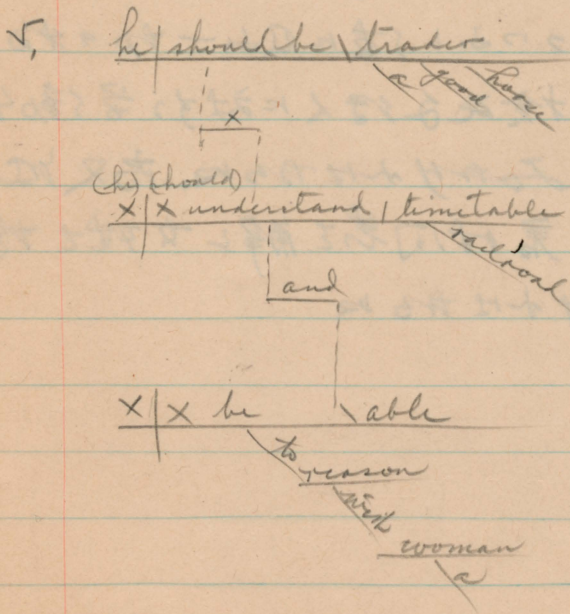 5.
he | should be \ trader
a good horse
x
(he) (should)
x | x understand | timetable
railroad
and
x | x be \ able
to
reason
with
woman
a